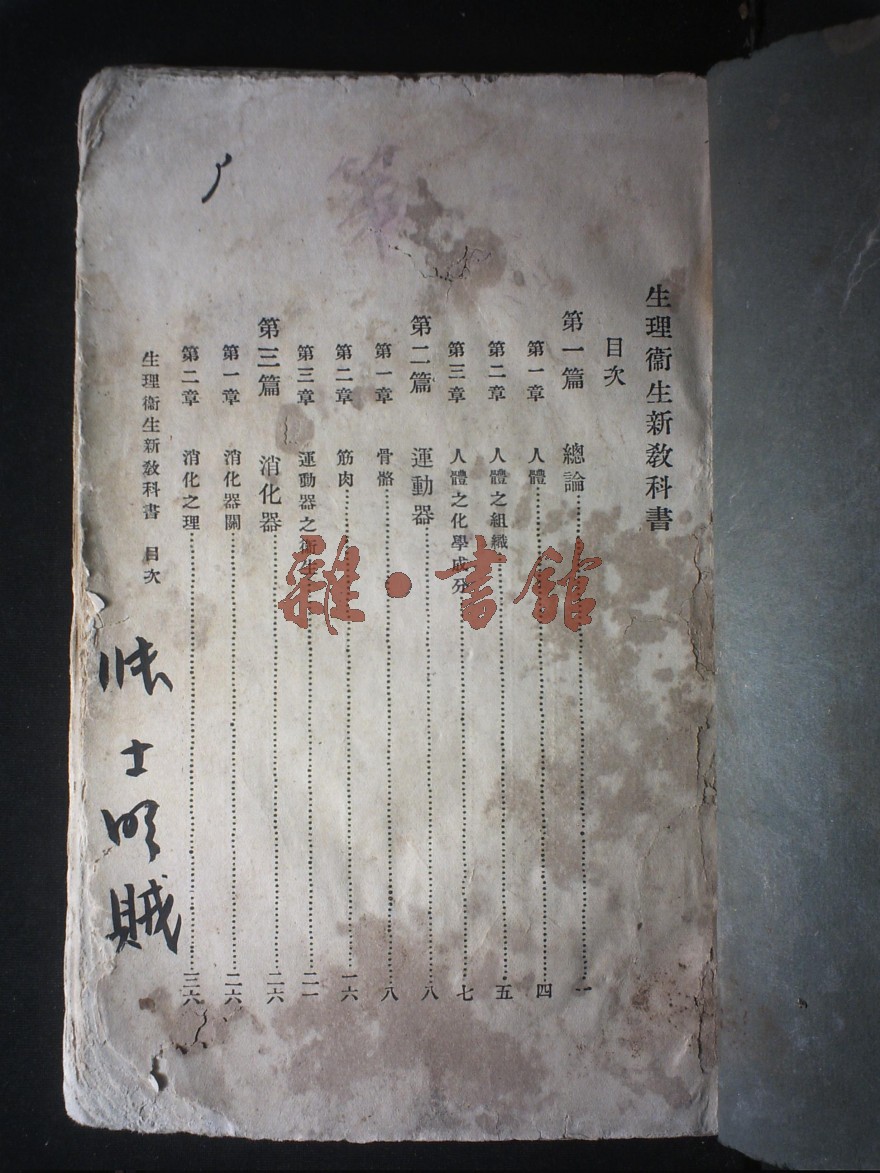 生理衞生新敎科書
目次
第一篇 總論 一
第一章 人體 四
第二章 人體之組織 五
第三章 人體之化學成分 七
第二篇 運動器 八
第一章 骨骼 八
第二章 筋肉 一六
第三章 運動器之衞生 二一
第三篇 消化器 二六
第一章 消化器關 二六
第二章 消化之理 三六
生理衞生新敎科書 目次
士明
雜·書館
第